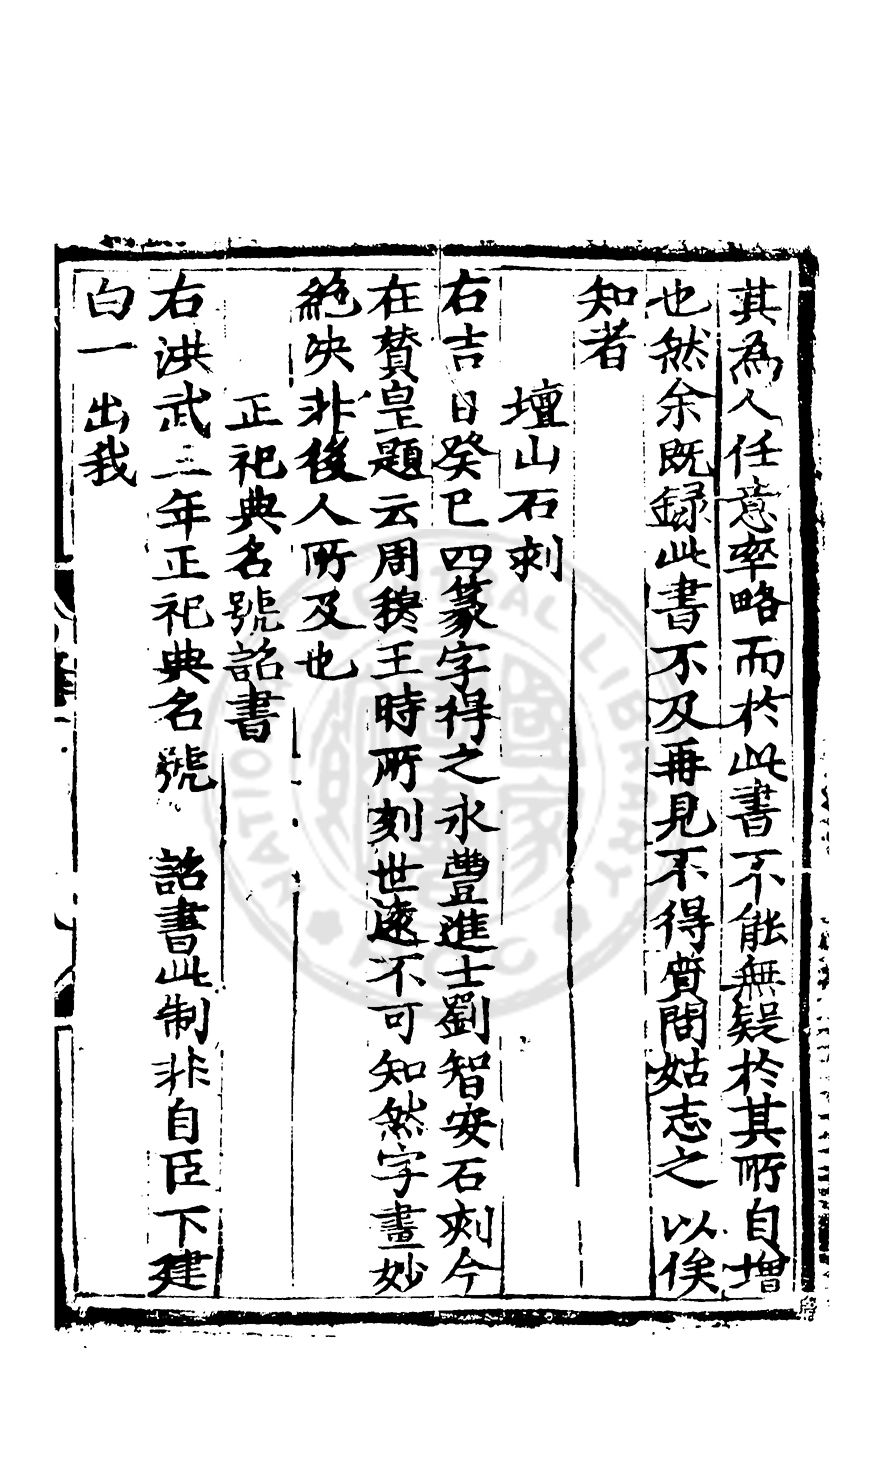 其為人任意率略而於此書不能無疑於其所自增
也然余既録此書不及再見不得質問姑志之以俟
知者
壇山石刻
右吉日癸巳四篆字得之永豐進士劉智安石刻今
在賛皇題云周穆王時所刻世逺不可知然字畫妙
絶决非後人所及也
正祀典名號詔書
右洪武三年正祀典名號 詔書此制非自臣下建
白一 出我
NATIONAL CENTRAL LIBRARY
ROC
國家圖書館